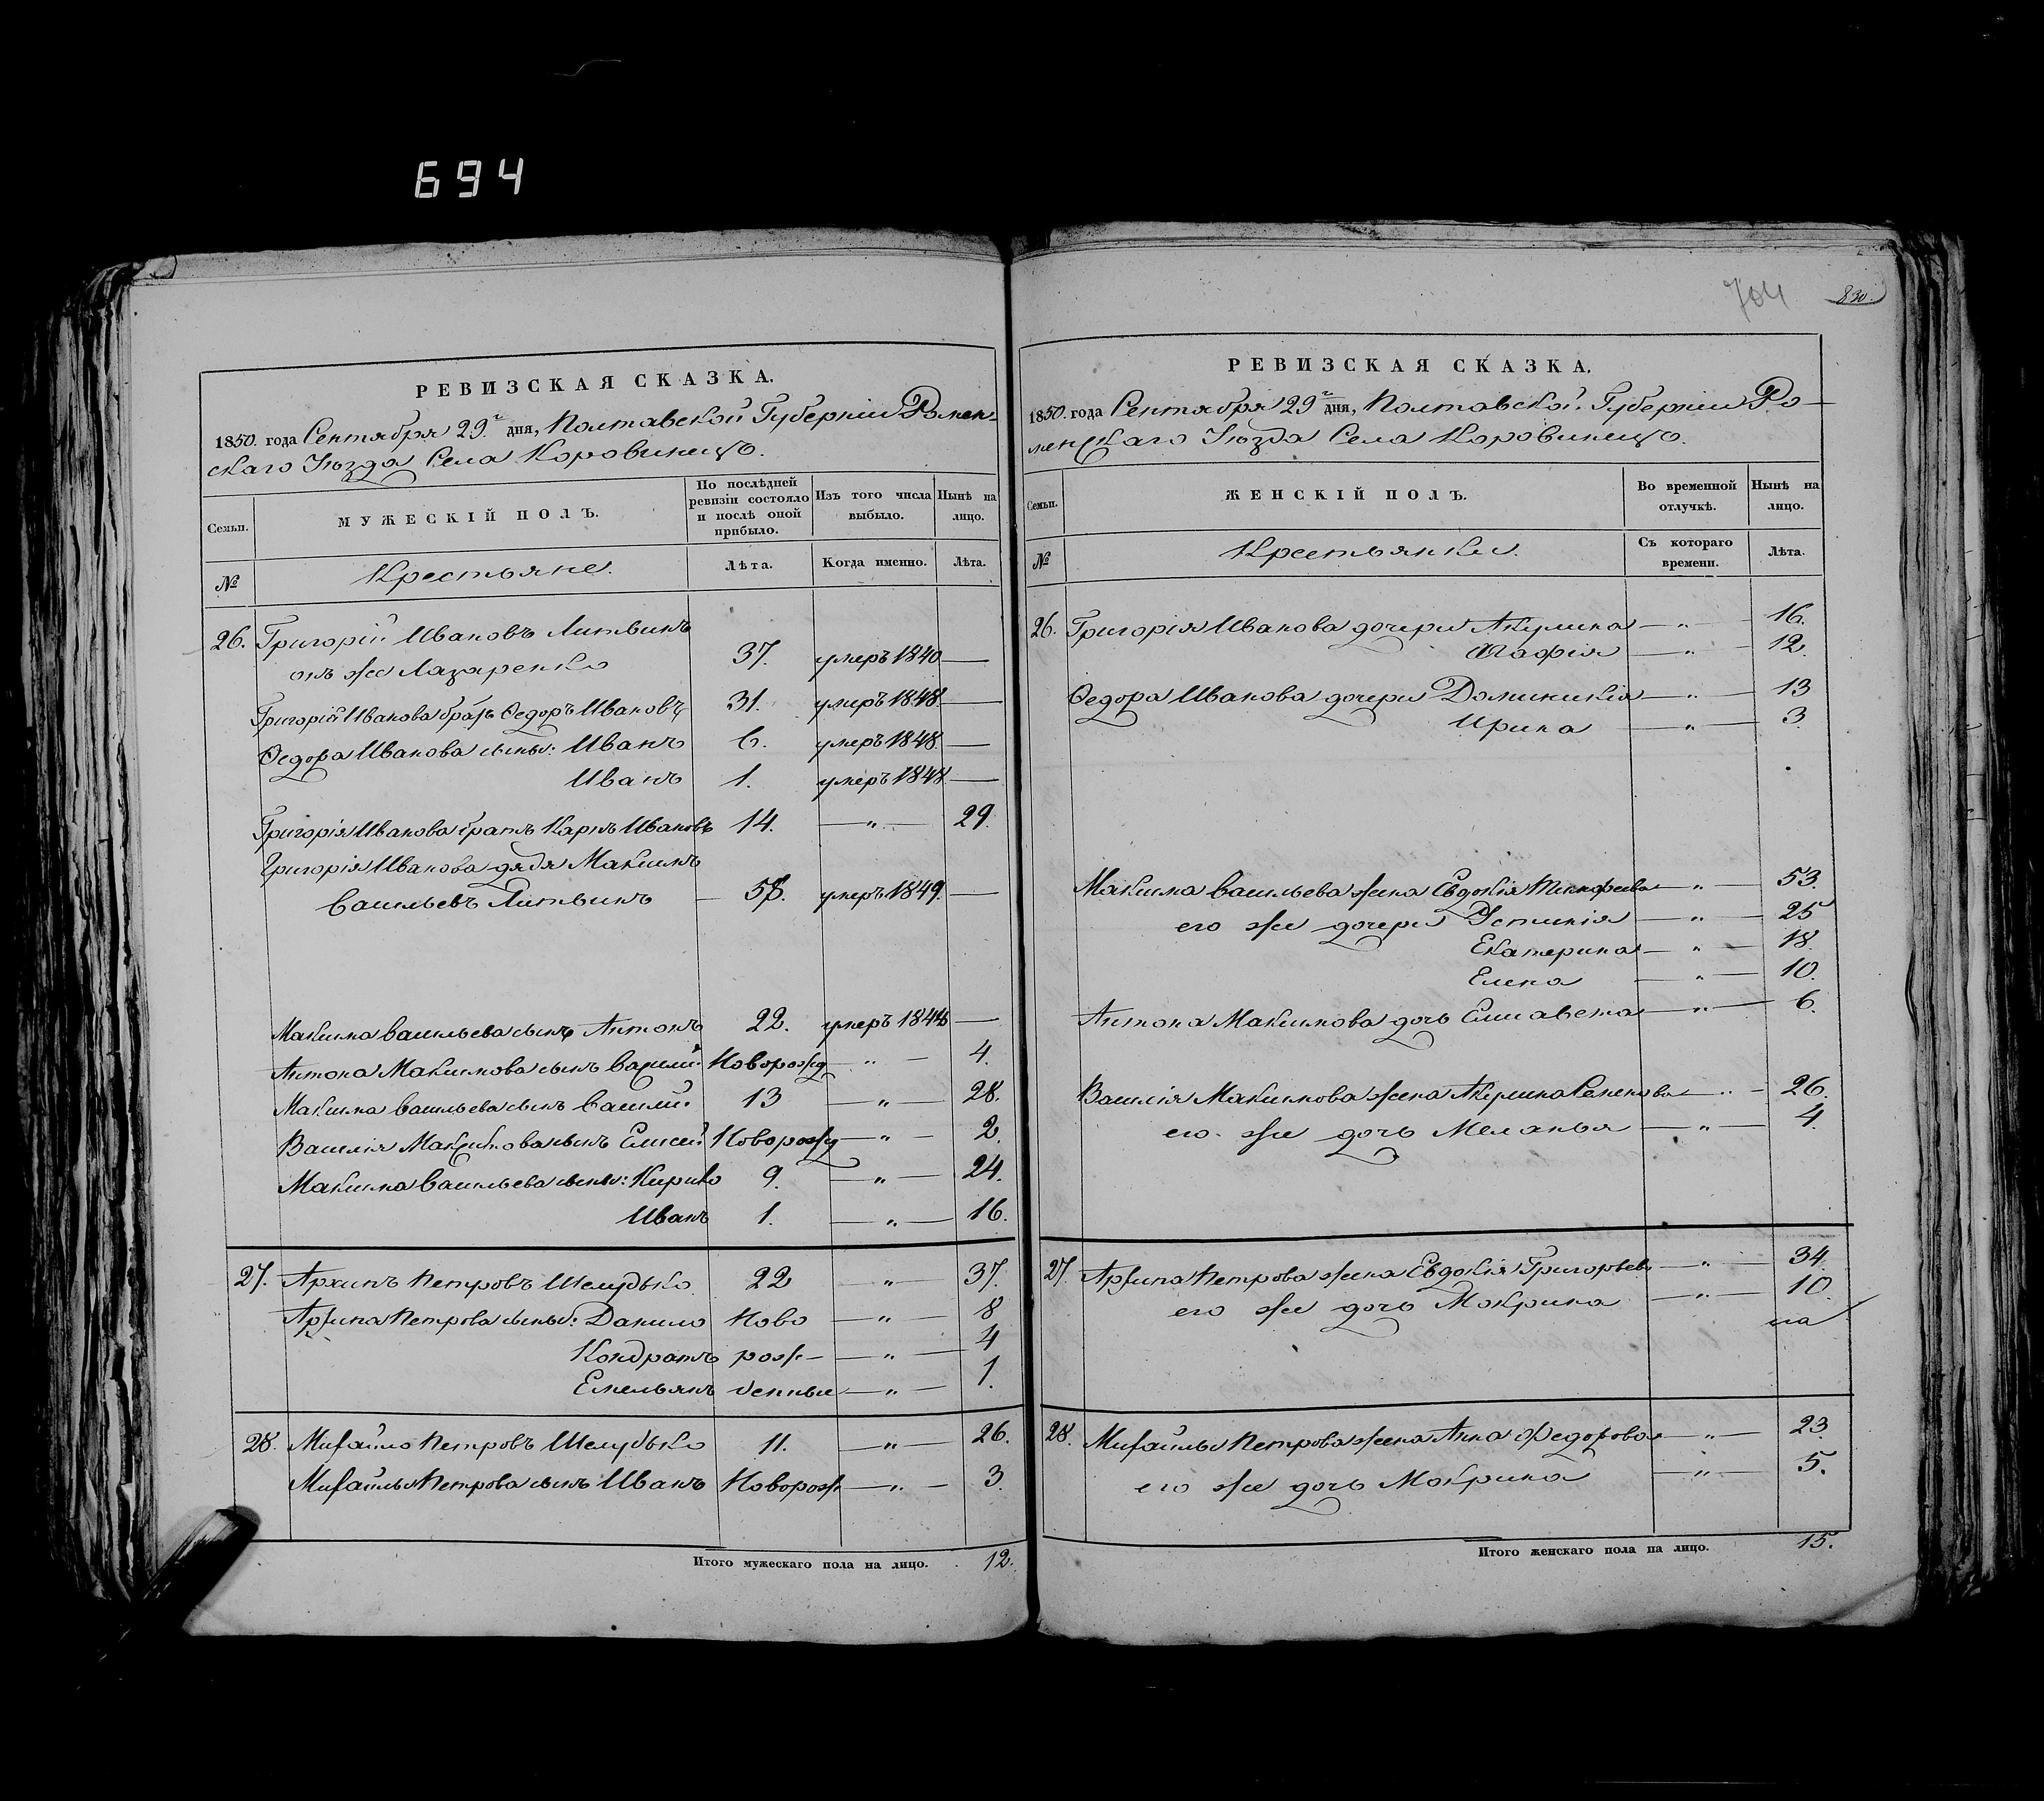 694
РЕВИЗСКАЯ СКАЗКА.
1850. года Сентября 29.г дня, Полтавской Губерніи Ромен-
скаго Уѣзда Села Коровинецъ.
Семьи.
МУЖЕСКІЙ ПОЛЪ.
По послѣдней ревизіи состояло и послѣ оной прибыло.
Изъ того числа выбыло.
Нынѣ на лицо.
№
Крестьяне.
Лѣта.
Когда именно.
Лѣта.
26. Григорій Ивановъ Литвинъ
онъ же Лазаренко 37. умеръ 1840 —
Григорія Иванова братъ Ѳедоръ Ивановъ 31. умеръ 1848. —
Ѳедора Иванова сыны: Иванъ 6. умеръ 1848. —
Иванъ 1. умеръ 1848. —
Григорія Иванова братъ Карпъ Ивановъ 14. — „ — 29.
Григорія Иванова дядя Максимъ
Васильевъ Литвинъ — 58. умеръ 1849. —
Максима Васильева сынъ Антонъ 22. умеръ —
Антона Максимова сынъ Василій Новорожд — „ — 4.
Максима Васильева сынъ Василій 13 — „ — 28.
Василія Максимова сынъ Елисей Новорожд — „ — 2.
Максима Васильева сыны: Кирило 9. — „ — 24.
Иванъ 1. — „ — 16.
27. Архипъ Петровъ Шелудько 22 „ — 37.
Архипа Петрова сыны: Данило Ново — „ — 8
Кондратъ рож- — „ — 4
Емельянъ денные — „ — 1.
28. Михайло Петровъ Шелудько 11. — „ — 26.
Михайлы Петрова сынъ Иванъ Новорож — „ — 3.
Итого мужескаго пола на лицо. 12.
704
830.
РЕВИЗСКАЯ СКАЗКА.
1850. года Сентября 29г дня, Полтавской Губерніи Ро-
менскаго Уѣзда Села Коровинецъ.
Семьи.
ЖЕНСКІЙ ПОЛЪ.
Во временной отлучкѣ.
Нынѣ на лицо.
№
Крестьянки.
Съ котораго времени.
Лѣта.
26. Григорія Иванова дочери Акулина — „ — 16.
Агафія — „ — 12.
Ѳедора Иванова дочери Доминикія — „ — 13
Ирина — „ — 3.
Максима Васильева жена Евдокія Тимофеева — „ — 53.
его же дочери Устинія — „ — 25
Екатерина — „ — 18.
Елена — „ — 10.
Антона Максимова дочь Елисавета — „ — 6.
Василія Максимова жена Акулина Семенова — „ — 26.
его же дочь Меланья — „ — 4.
27. Архипа Петрова жена Евдокія Григорьева — „ — 34.
его же дочь Мокрина — „ — 10.
28. Михайлы Петрова жена Анна Федорова — „ — 23.
его же дочь Мокрина — „ — 5.
Итого женскаго пола на лицо. 15.